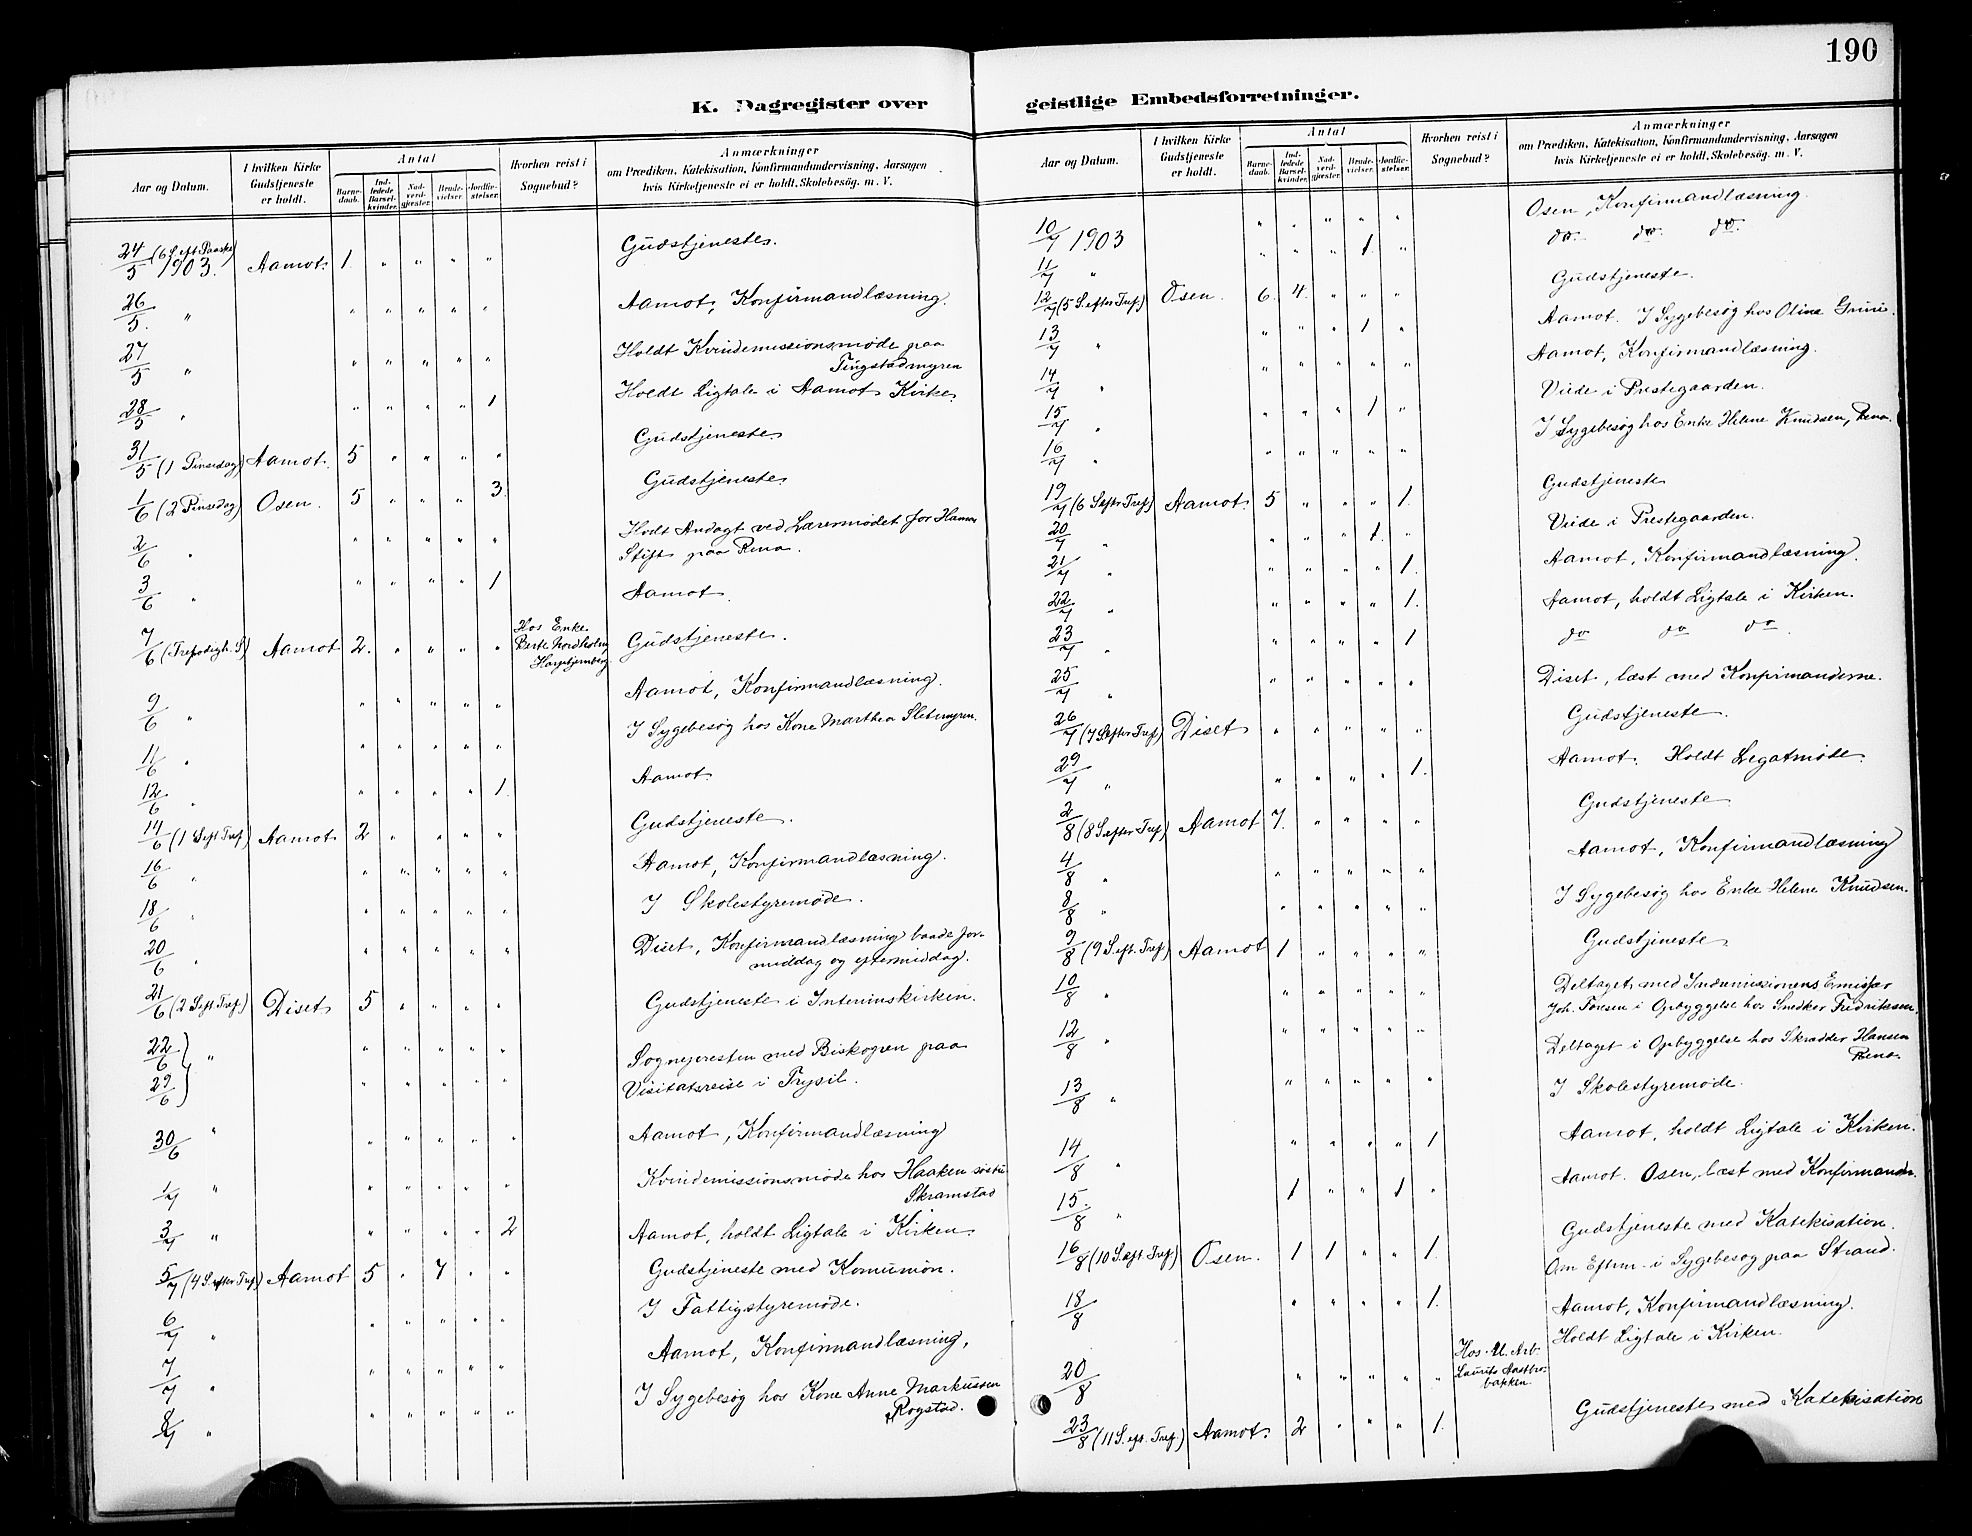 190
K. Dagregister over geistlige Embedsforretninger.
Aar og Datum. I hvilken Kirke Gudstjeneste er holdt. Antal Barne-daab. Ind-ledede Barsel-kvinder. Nad-verd-gjæster. Brude-vielser. Jordfæ-stelser. Hvorhen reist i Sognebud? Anmærkninger om Prædiken, Katekisation, Konfirmandundervisning, Aarsagen hvis Kirketjeneste ei er holdt, Skolebesøg. m. V.
24/5 (6 S. eft Paaske) 1903. Aamot. 1. " " " " Gudstjeneste.
26/5. " " " " " " Aamot, Konfirmandlæsning.
27/5 " " " " " " Holdt Kvindemissionsmøde paa
Tingstadmyren
28/5 " " " " " 1 Holdt Ligtale i Aamot Kirke.
31/5 (1 Pinsedag) Aamot. 5 " " " " Gudstjeneste
1/6 (2 Pinsedag) Osen. 5 " " " 3. Gudstjeneste
2/6 " " " " " " Holdt Andagt ved Lærermødet for Hamar
Stift paa Rena.
3/6 " " " " " 1 Aamot.
7/6 (Trefoldigh. S) Aamot 2. " " " " Hos Enke Berte Nordholen Gudstjeneste.
9/6 " " " " " " Aamot, Konfirmandlæsning.
11/6 " " " " " " I Sygebesøg hos Kone Marthea Sletmyren.
12/6 " " " " " 1. Aamot
14/6 (1 S eft Tref) Aamot 2 " " " " Gudstjeneste.
16/6 " " " " " " Aamot, Konfirmandlæsning.
18/6 " " " " " " I Skolestyremøde.
20/6 " " " " " " Diset, Konfirmandlæsning baade for-
middag og eftermiddag.
21/6 (2 S eft Tref.) Diset 5 " " " " Gudstjeneste i Interimskirken.
22/6 } " " " " " " Sognepresten med Biskopen paa
29/6 } " " " " " Visitatsreise i Trysil.
30/6 " " " " " " Aamot, Konfirmandlæsning
1/7 " " " " " " Kvindemissionsmøde hos Haaken
Skramstad
3/7 " " " " " 2 Aamot, holdt Ligtale i Kirken.
5/7 (4 S efter Tref) Aamot 5 " 7 " " Gudstjeneste med Komunion.
6/7 " " " " " " I Fattigstyremøde.
7/7 " " " " " " Aamot, Konfirmandlæsning,
8/7 " " " " " " I Sygebesøg hos Kone Anne Markussen
Rogstad.
Aar og Datum. I hvilken Kirke Gudstjeneste er holdt. Antal Barne-daab. Ind-ledede Barsel-kvinder. Nad-verd-gjæster. Brude-vielser. Jordfæ-stelser. Hvorhen reist i Sognebud? Anmærkninger om Prædiken, Katekisation, Konfirmandundervisning, Aarsagen hvis Kirketjeneste ei er holdt, Skolebesøg. m. V.
10/7 1903 " " " " " Osen, Konfirmandlæsning.
11/7 " " " " 1. " do. do. do.
12/7 (5 S. efter Tref.) Osen. 6. 4. " " " Gudstjeneste.
13/7 " " " " 1 " Aamot. I Sygebesøg hos Oline
14/7 " " " " " " Aamot, Konfirmandlæsning.
15/7 " " " " 1 " Viede i Prestegaarden.
16/7 " " " " " " I Sygebesøg hos Enke Helene Knudsen, Rena.
19/7 (6 S efter Tref) Aamot. 5 " " " 1. Gudstjeneste
20/7 " " " " 1. " Viede i Prestegaarden.
21/7 " " " " " 1. Aamot, Konfirmandlæsning.
22/7 " " " " " 1. Aamot, holdt Ligtale i Kirken.
23/7 " " " " " 1 do do do
25/7 " " " " " " Diset, læst med Konfirmanderne.
26/7 (7 S efter Tref) Diset " " " " " Gudstjeneste.
29/7 " " " " " 1. Aamot. Holdt Legatmøde.
2/8 (8 S efter Tref) Aamot 7. " " " " Gudstjeneste
4/8 " " " " " " Aamot, Konfirmandlæsning
8/8 " " " " " " I Sygebesøg hos Enke Helene Knudsen.
9/8 (9 S. eft. Tref.) Aamot 1 " " " " Gudstjeneste
10/8 " " " " " " Deltaget med Indremissionens Emissær
Joh. i Opbyggelse hos Snedker Fredriksen.
12/8 " " " " " " Deltaget i Opbyggelse hos Skrædder Hansen
Rena.
13/8 " " " " " " I Skolestyremøde.
14/8 " " " " " 1 Aamot, holdt Ligtale i Kirken.
15/8 " 1 " " 1 " Aamot. Osen, læst med Konfirmandr.
16/8 (10 S. eft Tref) Osen. 1 1 " " 1. Gudstjeneste med Katekisation.
Om Eftrm. i Sygebesøg paa Strand.
18/8 " " " " 1. Aamot, Konfirmandlæsning.
Holdt Ligtale i Kirken.
20/8 " " " " " Hos Laurits bakken.
23/8 (11 S. eft. Tref.) Aamot. 2 " " " 1. Gudstjeneste med Katekisation